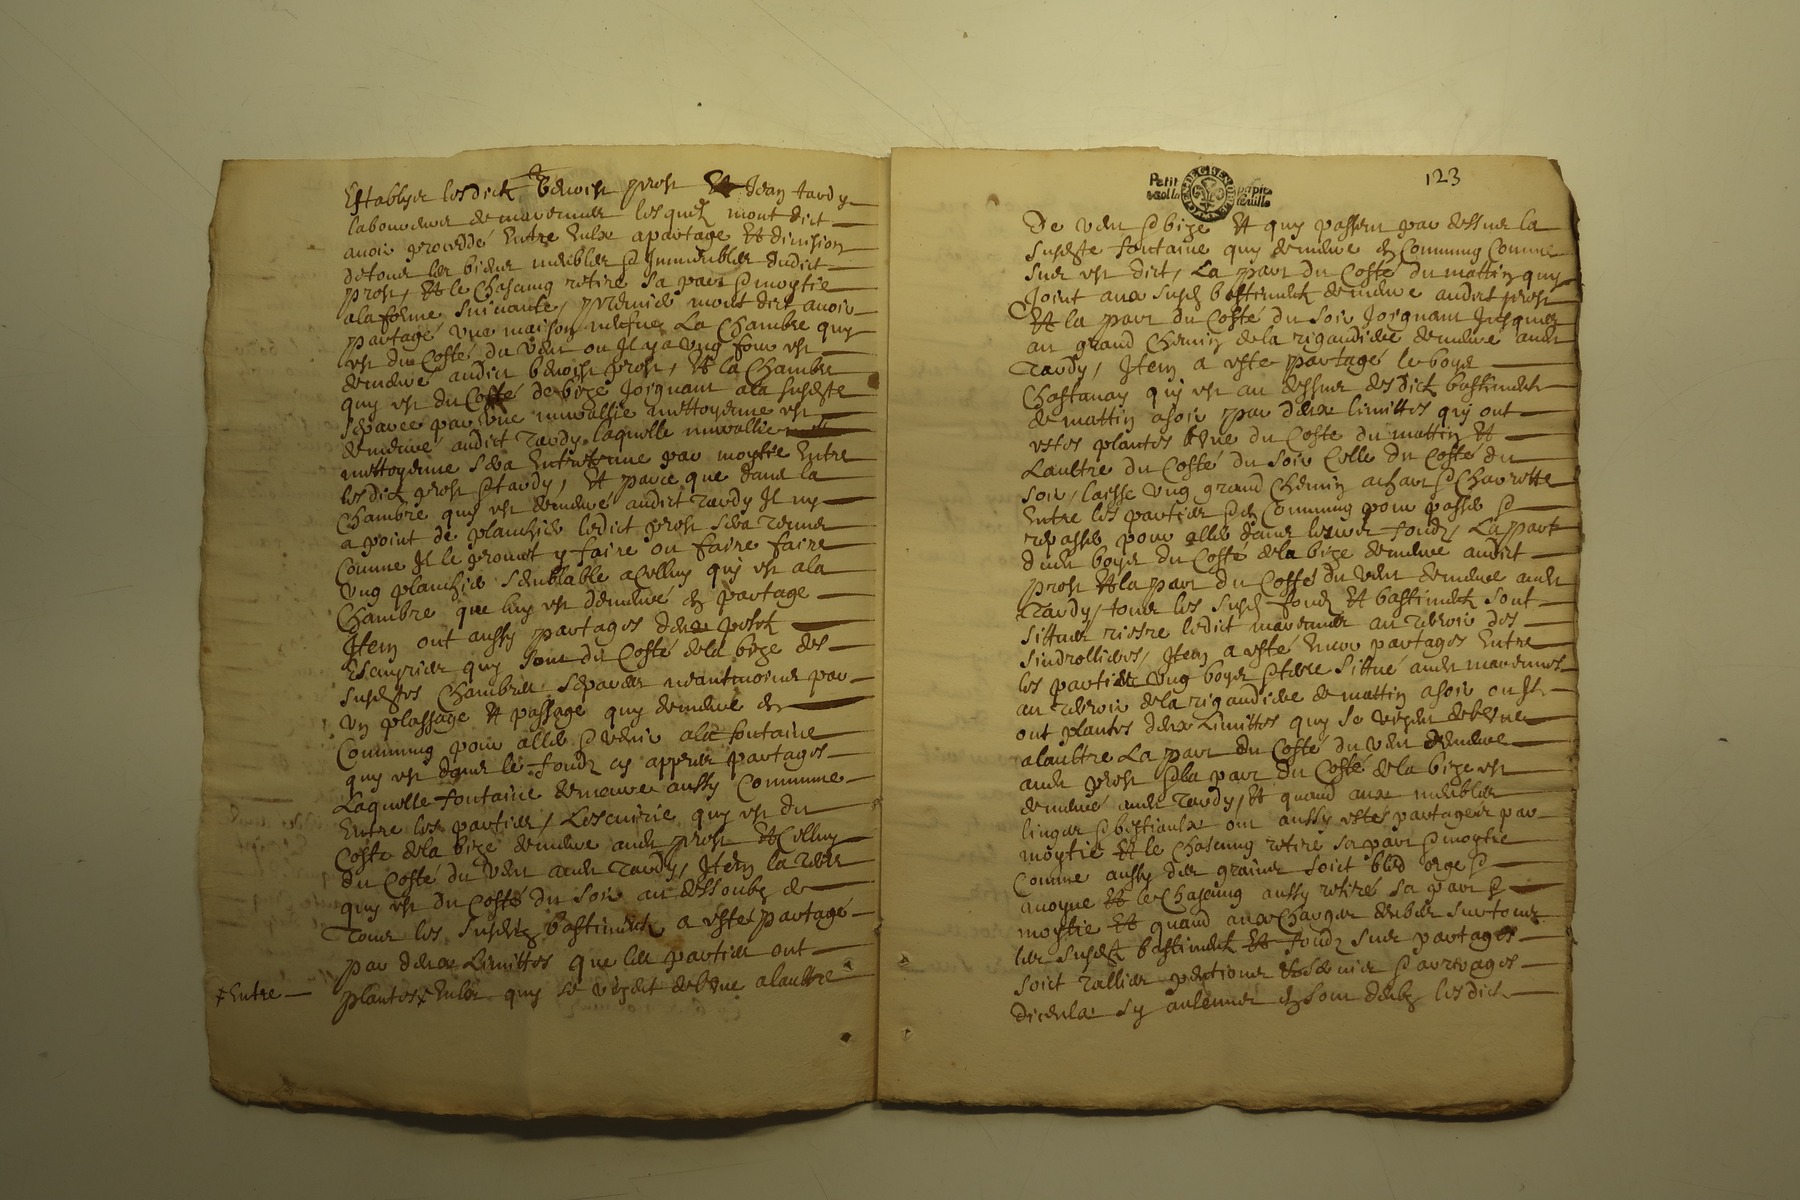 Establyes lesdictz Benoist prost Et Jean tardy
laboureurs de marennes lesquelz m'ont dict
avoir proceddé Entre Eulx a partage Et division
de tous les biens meubles & immeubles dudict
prost, Et le Chascung retire sa part & moytie
a la forme suivante, premier m'ont dict avoir
partagé une maison mesme La Chambre quy
est du Costé du vent ou Il y a ung four est
demeuré audict benoist prost, Et la Chambre
quy est du Costé de bize Joignant a la susdite
separée par une muraillie mettoyenne est
demeuré audict Tardy laquelle muraillie
mettoyenne sera Entretenue par moytie Entre
lesdictz prost & tardy, Et parce que dans la
Chambre quy est demeuré audict Tardy Il ny
a point de planchié ledict prost sera tenus
Comme Il le promet y faire ou faire faire
ung planchié semblable a Celluy quy est a la
Chambre que luy est demeuré en partage
Item ont aussy partagés deux petitz
Escuyries quy sont du Costé de la bize des
susdites Chambres separées neantmoins par
un plassage Et passage quy demeure en
Commung pour aller & venir a la fontaine
quy est dans le fondz cy appres partagés
Laquelle fontaine demeure aussy Commune
Entre les parties, Lescuirie quy est du
Costé de la bize demeure audit prost Et Celluy
du Costé du vent audit Tardy, Item la terre
quy est du Costé du soir au dessoubz de
Tous les susditz bastimentz a esté partagé
par deux Limittes que les parties ont
plantés + Eulx quy se visent de lune a laultre
+ Entre
Petit papier
feuille
123
De vent & bize Et quy passent par dessus la
susdite fontaine quy demeure en Commung Comme
sus est dict, La part du Costé du mattin quy
Joint aux susditz bastimentz demeure audict prost
Et la part du Costé du soir Joignant Jusques
au grand Chemin de la rigaudiere demeure audit
Tardy, Item a esté partagé le boys
Chastanay quy est au dessus desdictz bastimentz
de mattin a soir par deux limittes quy ont
estés plantés lune du Costé du mattin Et
Laultre du Costé du soir Celle du Costé du
soir, laisse ung grand Chemin a Char & Charrette
Entre les parties & en Commung pour passer &
repasser pour aller dans leurs fondz, La part
dudit boys du Costé de la bize demeure audict
prost Et la part du Costé du vent demeure audit
Tardy, tous les susditz fondz Et bastimentz sont
sittues riere ledict marennes au terroir des
sindrollieres, Item a esté Encor partagés Entre
les parties ung boys & terre sittué audit marennes
au terroir de la rigaudiere de mattin a soir ou Ilz
ont plantés deux Limittes quy se visent de lune
a laultre La part du Costé du vent demeure
audit prost & la part du Costé de la bize est
demeuré audit Tardy, Et quand aux meubles
linges & bestiaulx ont aussy estés partagés par
moytie Et le Chascung retire sa part & moytie
Comme aussy des graines soict bled orge &
avoyne Et le Chascung aussy retiré sa part &
moytie Et quand aux Charges deubes sur tous
les susditz bastimentz Et fondz sus partagés
soict tallies pentions & servies & arreyages
Diceulx sy aulcunes en sont deubz lesdictz